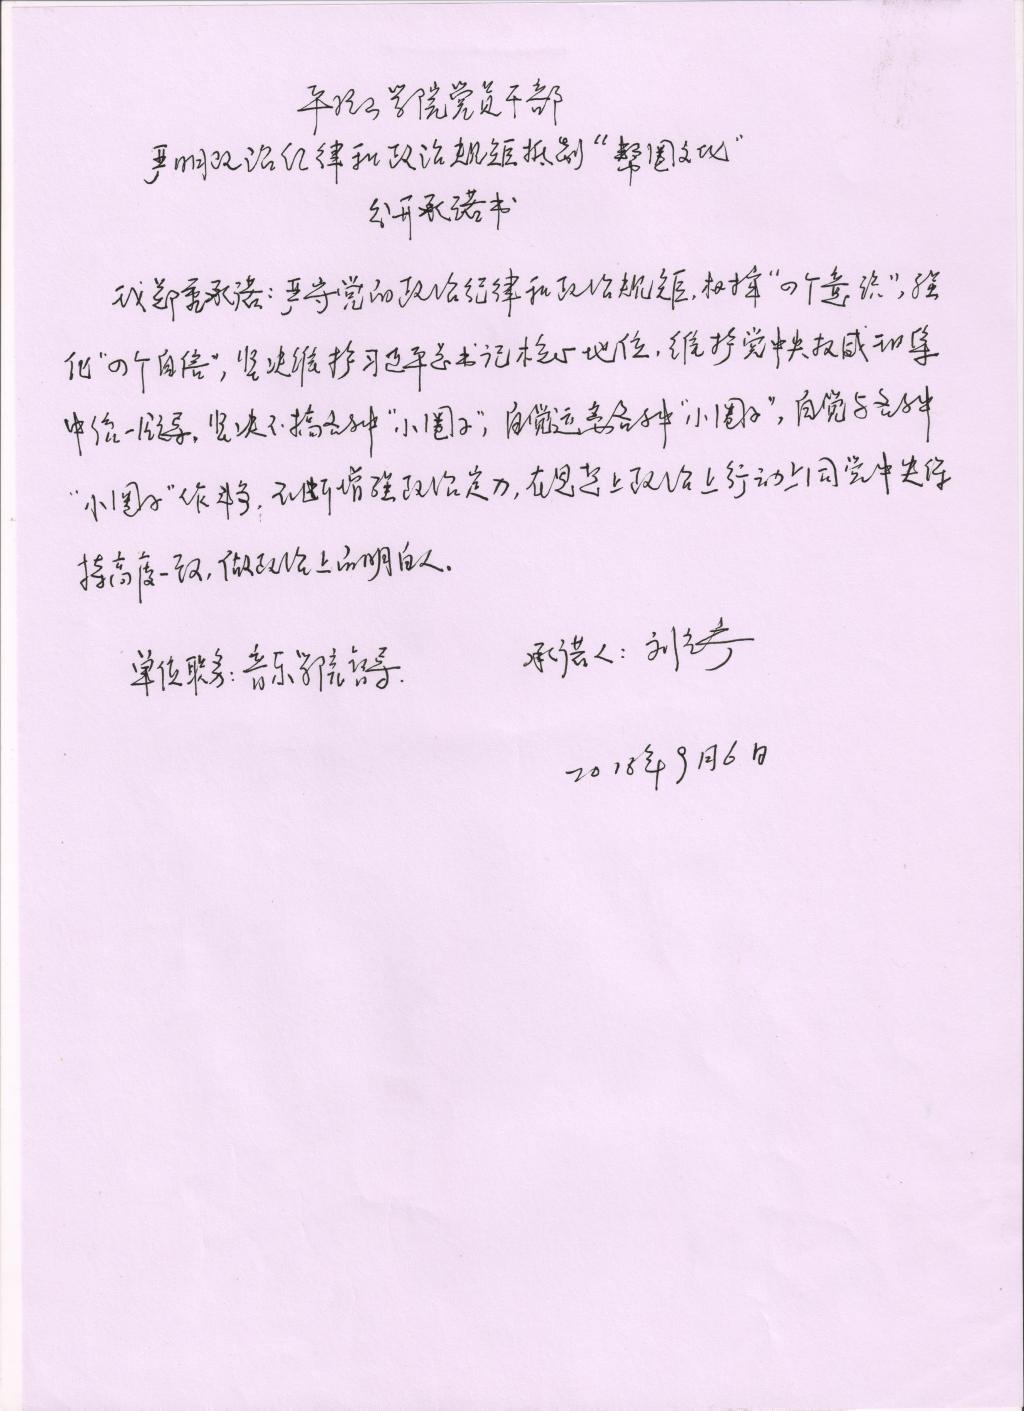 平顶山学院党员干部
严明政治纪律和政治规矩抵制“帮圈文化”
公开承诺书
我郑重承诺:严守党的政治纪律和政治规矩,树牢“四个意识”,强
化“四个自信”,坚决维护习近平总书记核心地位,维护党中央权威和集
中统一领导,坚决不搞各种“小圈子”,自觉远离各种“小圈子”,自觉与各种
“小圈子”作斗争,不断增强政治定力,在思想上政治上行动上同党中央保
持高度一致,做政治上的明白人。
单位职务:音乐学院督导.
承诺人:刘
2018年9月6日